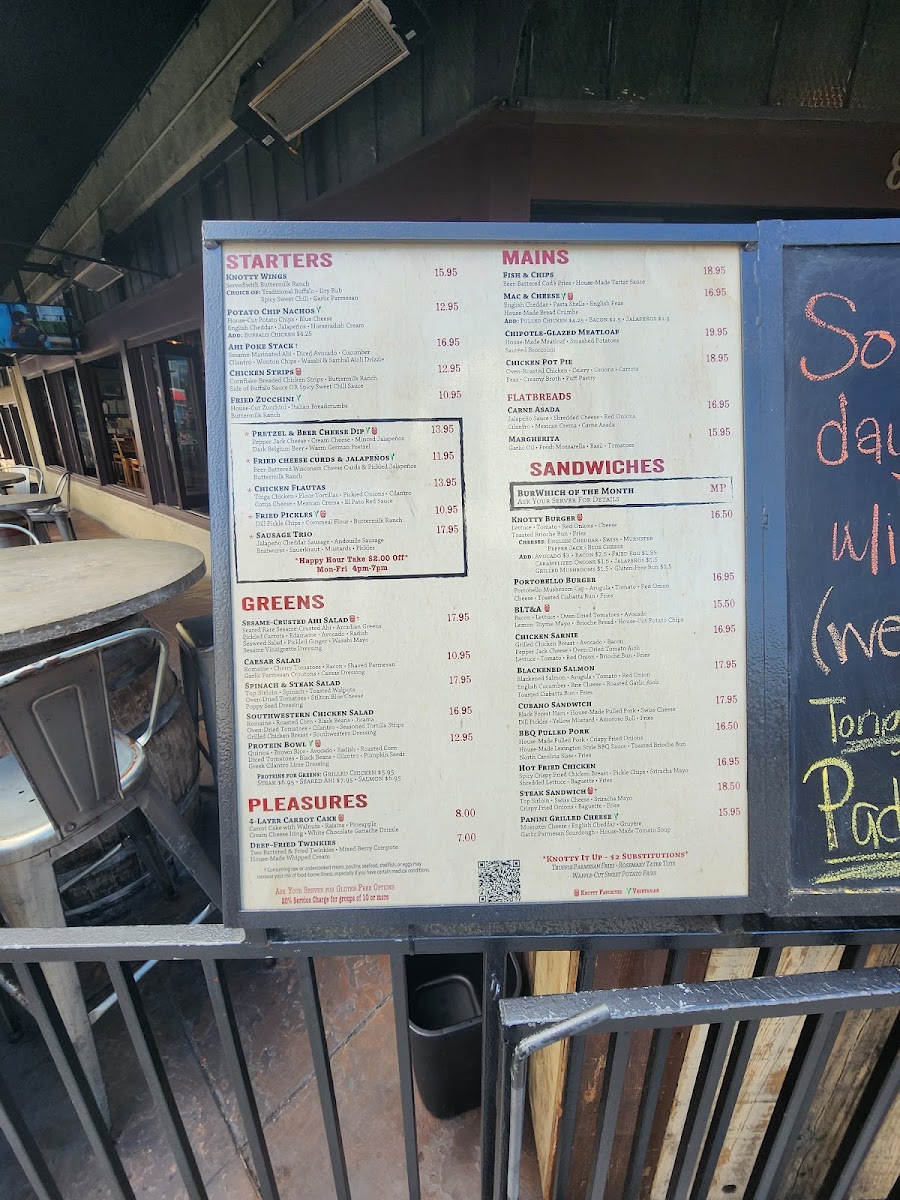 STARTERS
KNOTTY WINGS 15.95
Served with Buttermilk Ranch
CHOICE OF: Traditional Buffalo • Dry Rub
Spicy Sweet Chili • Garlic Parmesan
POTATO CHIP NACHOS 12.95
House-Cut Potato Chips • Blue Cheese
English Cheddar • Jalapeños • Horseradish Cream
ADD: BUFFALO CHICKEN $4.25
AHI POKE STACK † 16.95
Sesame-Marinated Ahi • Diced Avocado • Cucumber
Cilantro • Wonton Chips • Wasabi & Sambal Aioli Drizzle
CHICKEN STRIPS 12.95
Cornflake Breaded Chicken Strips • Buttermilk Ranch
Side of Buffalo Sauce OR Spicy Sweet Chili Sauce
FRIED ZUCCHINI 10.95
House-Cut Zucchini • Italian Breadcrumbs
Buttermilk Ranch
* PRETZEL & BEER CHEESE DIP 13.95
Pepper Jack Cheese • Cream Cheese • Minced Jalapeños
Dark Belgium Beer • Warm German Pretzel
* FRIED CHEESE CURDS & JALAPEÑOS 11.95
Beer-Battered Wisconsin Cheese Curds & Pickled Jalapeños
Buttermilk Ranch
* CHICKEN FLAUTAS 13.95
Tinga Chicken • Flour Tortillas • Pickled Onions • Cilantro
Cotija Cheese • Mexican Crema • El Pato Red Sauce
* FRIED PICKLES 10.95
Dill Pickle Chips • Cornmeal Flour • Buttermilk Ranch
* SAUSAGE TRIO 17.95
Jalapeño Cheddar Sausage • Andouille Sausage
Bratwurst • Sauerkraut • Mustards • Pickles
*Happy Hour Take $2.00 Off*
Mon-Fri 4pm-7pm
GREENS
SESAME-CRUSTED AHI SALAD † 17.95
Seared Rare Sesame Crusted Ahi • Arcadian Greens
Pickled Carrots • Edamame • Avocado • Radish
Seaweed Salad • Pickled Ginger • Wasabi Mayo
Sesame Vinaigrette Dressing
CAESAR SALAD 10.95
Romaine • Cherry Tomatoes • Bacon • Shaved Parmesan
Garlic Parmesan Croutons • Caesar Dressing
SPINACH & STEAK SALAD 17.95
Top Sirloin • Spinach • Toasted Walnuts
Oven-Dried Tomatoes • Stilton Blue Cheese
Poppy Seed Dressing
SOUTHWESTERN CHICKEN SALAD 16.95
Romaine • Roasted Corn • Black Beans • Jicama
Oven-Dried Tomatoes • Cilantro • Seasoned Tortilla Strips
Grilled Chicken Breast • Southwestern Dressing
PROTEIN BOWL 12.95
Quinoa • Brown Rice • Avocado • Radish • Roasted Corn
Diced Tomatoes • Black Beans • Cilantro • Pumpkin Seeds
Greek Cilantro Lime Dressing
PROTEINS FOR GREENS: GRILLED CHICKEN $5.95
STEAK $8.95 • SEARED AHI $7.95 • SALMON $6.95
PLEASURES
4-LAYER CARROT CAKE 8.00
Carrot Cake with Walnuts • Raisins • Pineapple
Cream Cheese Icing • White Chocolate Ganache Drizzle
DEEP-FRIED TWINKIES 7.00
Two Battered & Fried Twinkies • Mixed Berry Compote
House-Made Whipped Cream
† Consuming raw or undercooked meats, poultry, seafood, shellfish, or eggs may
increase your risk of food borne illness, especially if you have certain medical conditions.
ASK YOUR SERVER FOR GLUTEN-FREE OPTIONS
20% Service Charge for groups of 10 or more
MAINS
FISH & CHIPS 18.95
Beer-Battered Cod • Fries • House-Made Tartar Sauce
MAC & CHEESE 16.95
English Cheddar • Pasta Shells • English Peas
House-Made Bread Crumbs
ADD: PULLED CHICKEN $4.25 • BACON $2.5 • JALAPEÑOS $1.5
CHIPOTLE-GLAZED MEATLOAF 19.95
House-Made Meatloaf • Smashed Potatoes
Sauteed Broccolini
CHICKEN POT PIE 18.95
Oven-Roasted Chicken • Celery • Onions • Carrots
Peas • Creamy Broth • Puff Pastry
FLATBREADS
CARNE ASADA 16.95
Jalapeño Sauce • Shredded Cheese • Red Onions
Cilantro • Mexican Crema • Carne Asada
MARGHERITA 15.95
Garlic Oil • Fresh Mozzarella • Basil • Tomatoes
SANDWICHES
BURWHICH OF THE MONTH MP
ASK YOUR SERVER FOR DETAILS
KNOTTY BURGER 16.50
Lettuce • Tomato • Red Onions • Cheese
Toasted Brioche Bun • Fries
CHEESES: ENGLISH CHEDDAR • SWISS • MUENSTER
PEPPER JACK • BLUE CHEESE
ADD: AVOCADO $3 • BACON $2.5 • FRIED EGG $1.95
CARAMELIZED ONIONS $1.5 • JALAPEÑOS $1.5
GRILLED MUSHROOMS $1.5 • GLUTEN FREE BUN $1.5
PORTOBELLO BURGER 16.95
Portobello Mushroom Cap • Arugula • Tomato • Red Onion
Cheese • Toasted Ciabatta Bun • Fries
BLT&A 15.50
Bacon • Lettuce • Oven-Dried Tomatoes • Avocado
Lemon Thyme Mayo • Brioche Bread • House-Cut Potato Chips
CHICKEN SARNIE 16.95
Grilled Chicken Breast • Avocado • Bacon
Pepper Jack Cheese • Oven-Dried Tomato Aioli
Lettuce • Tomato • Red Onion • Brioche Bun • Fries
BLACKENED SALMON 17.95
Blackened Salmon • Arugula • Tomato • Red Onion
English Cucumber • Brie Cheese • Roasted Garlic Aioli
Toasted Ciabatta Bun • Fries
CUBANO SANDWICH 17.95
Black Forest Ham • House-Made Pulled Pork • Swiss Cheese
Dill Pickles • Yellow Mustard • Amoroso Roll • Fries
BBQ PULLED PORK 16.50
House-Made Pulled Pork • Crispy Fried Onions
House-Made Lexington Style BBQ Sauce • Toasted Brioche Bun
North Carolina Slaw • Fries
HOT FRIED CHICKEN 16.95
Spicy Crispy Fried Chicken Breast • Pickle Chips • Sriracha Mayo
Shredded Lettuce • Baguette • Fries
STEAK SANDWICH † 18.50
Top Sirloin • Swiss Cheese • Sriracha Mayo
Crispy Fried Onions • Baguette • Fries
PANINI GRILLED CHEESE 15.95
Muenster Cheese • English Cheddar • Gruyère
Garlic Parmesan Sourdough • House-Made Tomato Soup
*KNOTTY IT UP - $2 SUBSTITUTIONS*
TRUFFLE PARMESAN FRIES • ROSEMARY TATER TOTS
WAFFLE-CUT SWEET POTATO FRIES
KNOTTY FAVORITES VEGETARIAN
So
day
wi
(we
Toni
Pad